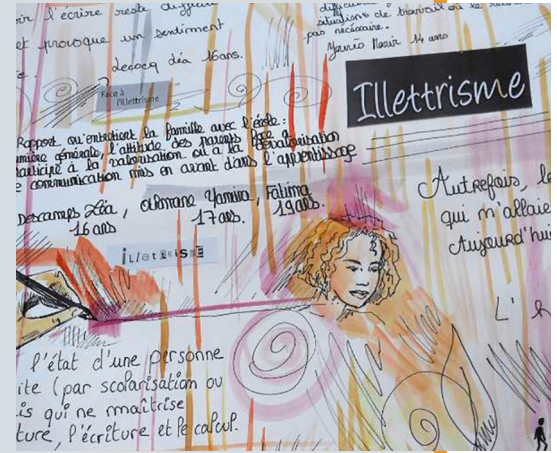 ir l'écrire reste
et provoque un sentiment
Lecocq Léa 16ans.
situations de travail où le
pas nécessaire.
Yanis Nasir 14 ans
Face à
l'illettrisme
Illettrisme
Rapport qu'entretient la famille avec l'école :
mière générale, l'attitude des parents face à
participe à la valorisation ou à la dévalorisation
e communication mis en avant dans l'apprentissage
Descamps Léa, Yamina, Fatima
16 ans 17 ans. 19 ans.
illettrisme
Autrefois, le
qui m'allaie
Aujourd'hui
L'
l'état d'une personne
ite (par scolarisation ou
is qui ne maîtrise
ture, l'écriture et le calcul.